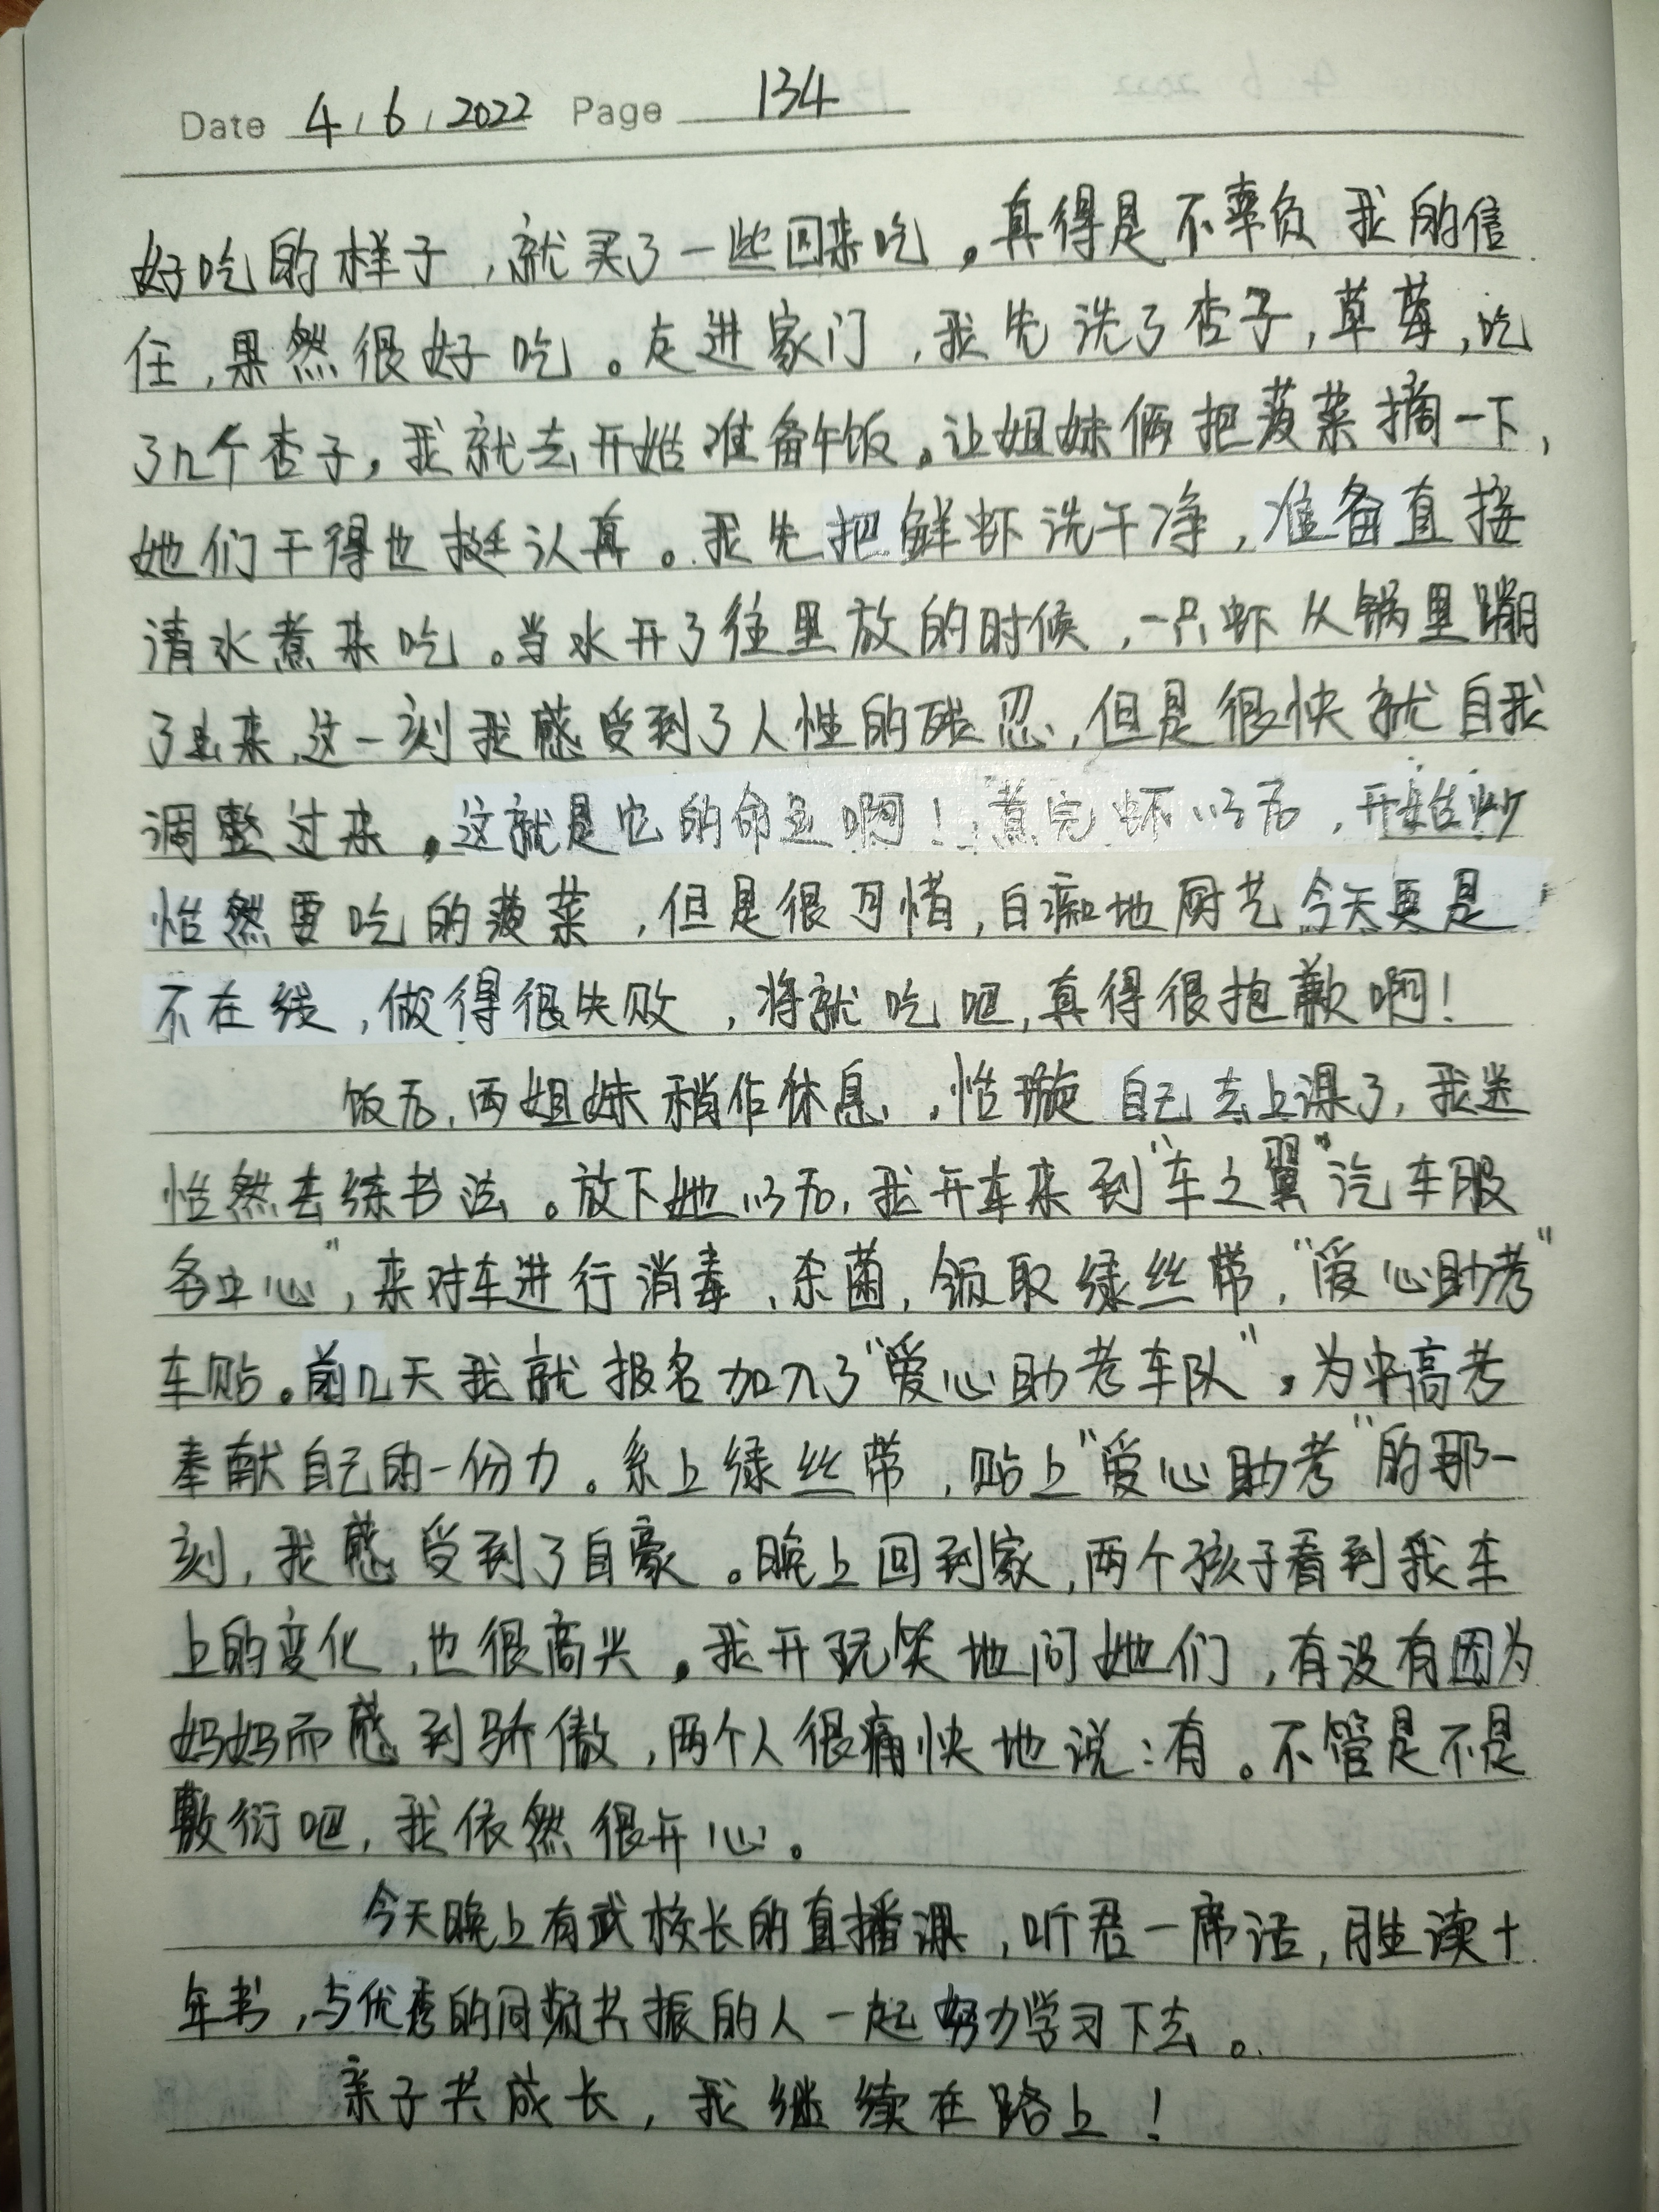 Date 4 / 6 / 2022 Page 134
好吃的样子,就买了一些回来吃。真得是不辜负我的信
任,果然很好吃。走进家门,我先洗了杏子,草莓,吃
了几个杏子,我就去开始准备午饭。让姐妹俩把菠菜摘一下,
她们干得也挺认真。我先把鲜虾洗干净,准备直接
清水煮来吃。当水开了往里放的时候,一只虾从锅里蹦
了出来,这一刻我感受到了人性的残忍,但是很快就自我
调整过来。这就是它的命运啊!煮完虾以后,开始炒
怡然要吃的菠菜,但是很可惜,白痴地厨艺今天更是
不在线,做得很失败,将就吃吧,真得很抱歉啊!
饭后,两姐妹稍作休息,怡璇自己去上课了,我送
怡然去练书法。放下她以后,我开车来到“车之翼”汽车服
务中心”,来对车进行消毒、杀菌,领取绿丝带,“爱心助考”
车贴。前几天我就报名加入了“爱心助考车队”。为中高考
奉献自己的一份力。系上绿丝带,贴上“爱心助考”的那一
刻,我感受到了自豪。晚上回到家,两个孩子看到我车
上的变化,也很高兴。我开玩笑地问她们,有没有因为
妈妈而感到骄傲,两个人很痛快地说:有。不管是不是
敷衍吧,我依然很开心。
今天晚上有武校长的直播课,听君一席话,胜读十
年书,与优秀的同频共振的人一起努力学习下去。
亲子共成长,我继续在路上!